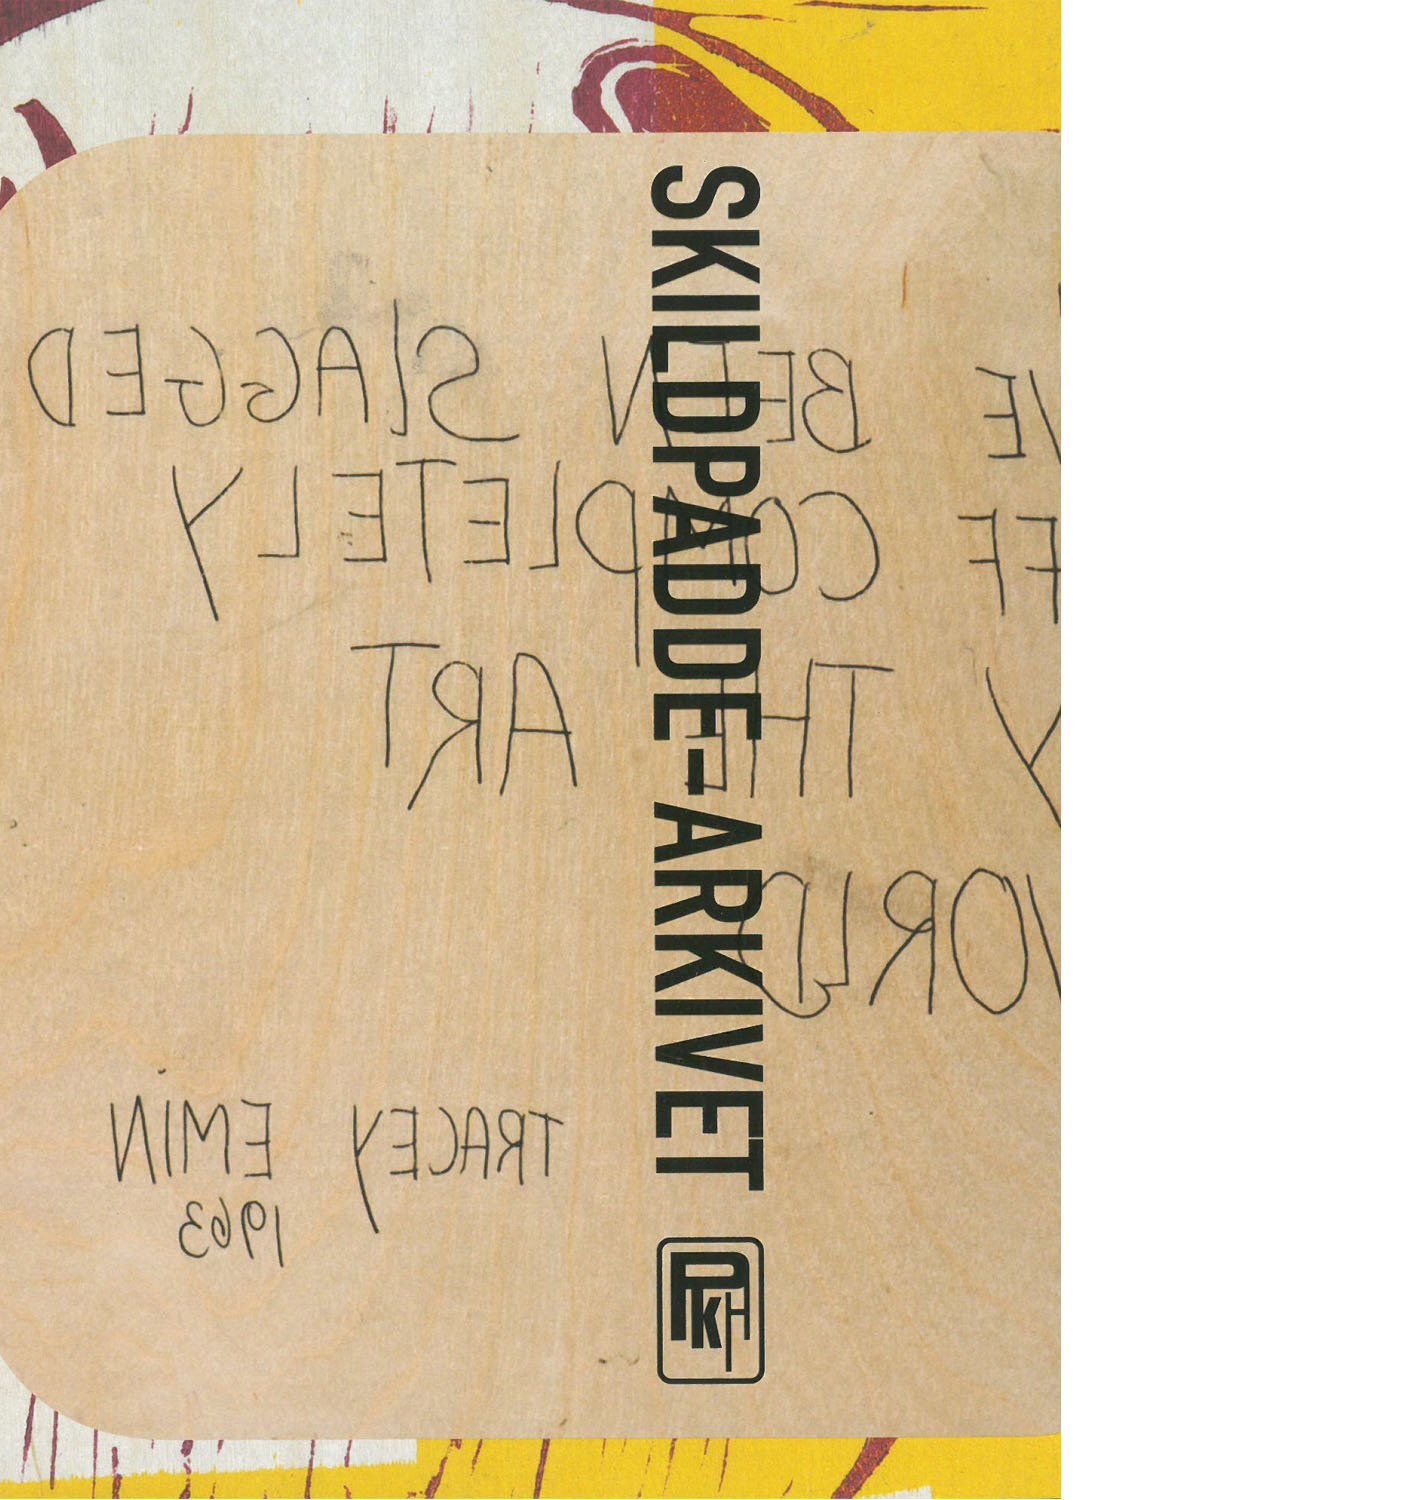 SKILDPADDE-ARKIVET
VE BEEN SLAGGED
FF COMPLETELY
Y THE ART
WORLD
TRACEY EMIN
1963